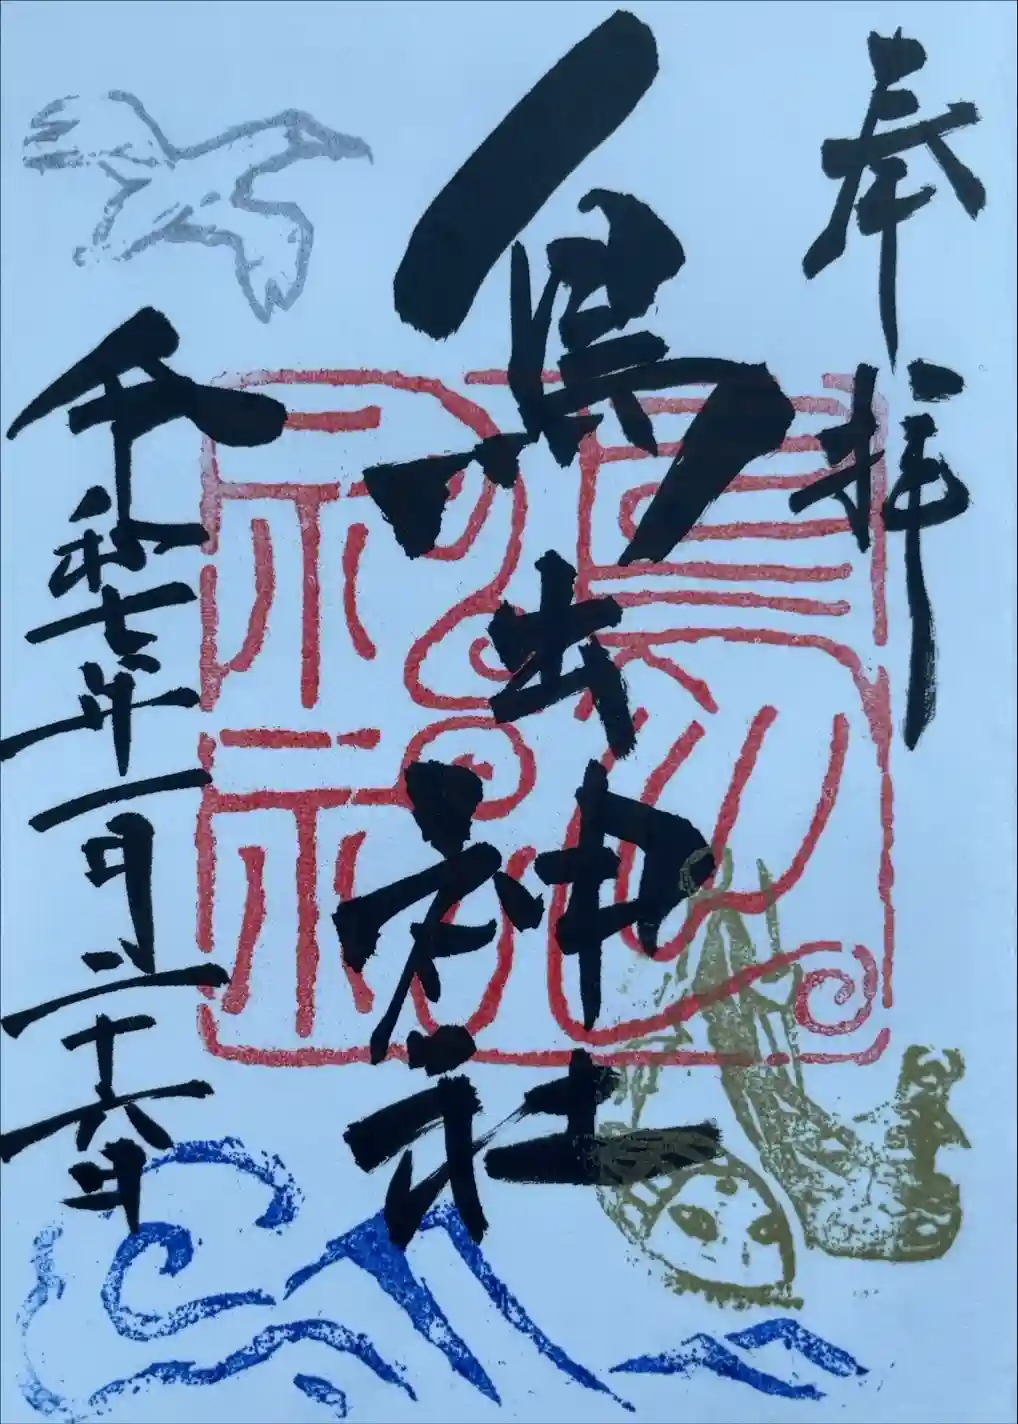 奉拝
鳥出神社
令和七年一月二十六日